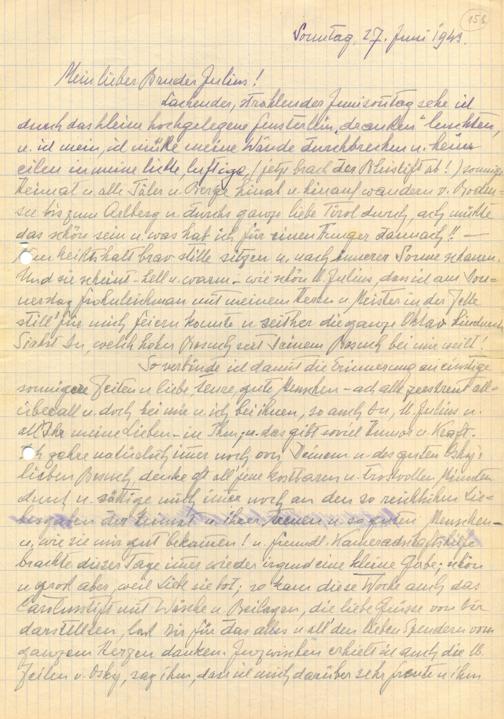 158
Sonntag, 27. Juni 1943.
Mein lieber Bruder Julius!
Lachender, strahlender Junisonntag sehe ich
durch das kleine hochgelegene Fensterlein „draußen“ leuchten,
u. ich mein, ich müßte meine Wände durchbrechen u. heim
eilen in meine liebe, luftige, (jetzt brach der Bleistift ab!) sonnige
Heimat u. alle Täler u. Berge hinab u. hinauf wandern v. Boden-
see bis zum Arlberg u. durchs ganze liebe Tirol durch, ach müßte
das schön sein u. was hab ich für einen Hunger darnach!! —
Nun heißts halt brav stille sitzen u. nach innerer Sonne schauen.
Und sie scheint - hell u. warm - wie schön lb. Julius, das ich am Don-
nerstag Fronleichnam mit meinem Herrn u. Meister in der Zelle
still für mich feiern konnte u. seither die ganze Oktav hindurch.
Siehst Du, welch hoher Besuch seit Deinem Besuch bei mir weilt!
So verbinde ich damit die Erinnerung an einstige
sonnigere Zeiten u. liebe, teure, gute Menschen - ach alle zerstreut all-
überall u. doch bei mir u. ich bei ihnen, so auch Du, lb. Julius u.
all Ihr meine lieben - in Ihm, u. das gibt soviel Humor u. Kraft.
Ich zehre natürlich imer noch von Deinem u. des guten Osky's
lieben Besuch, denke oft all jene kostbaren u. trostvollen Minuten
durch u. sättige mich imer noch an den so reichlichen Lie-
besgaben der Heimat u. ihrer treuen u. so guten Menschen -
u. wie sie mir gut bekamen! u. freundl. Kameradschaftsliebe
brachte dieser Tage imer wieder irgend eine kleine Gabe; schön
u. groß aber, weil Liebe sie bot; so kam diese Woche auch das
mit Wäsche u. Beilagen, die liebe Grüsse von Dir
darstellten, laß Dir für das alles u. all' den lieben Spendern vom
ganzem Herzen danken. Inzwischen erhielt ich auch die lb.
Zeilen v. Osky, sag ihm, das ich mich darüber sehr freute u. ihm